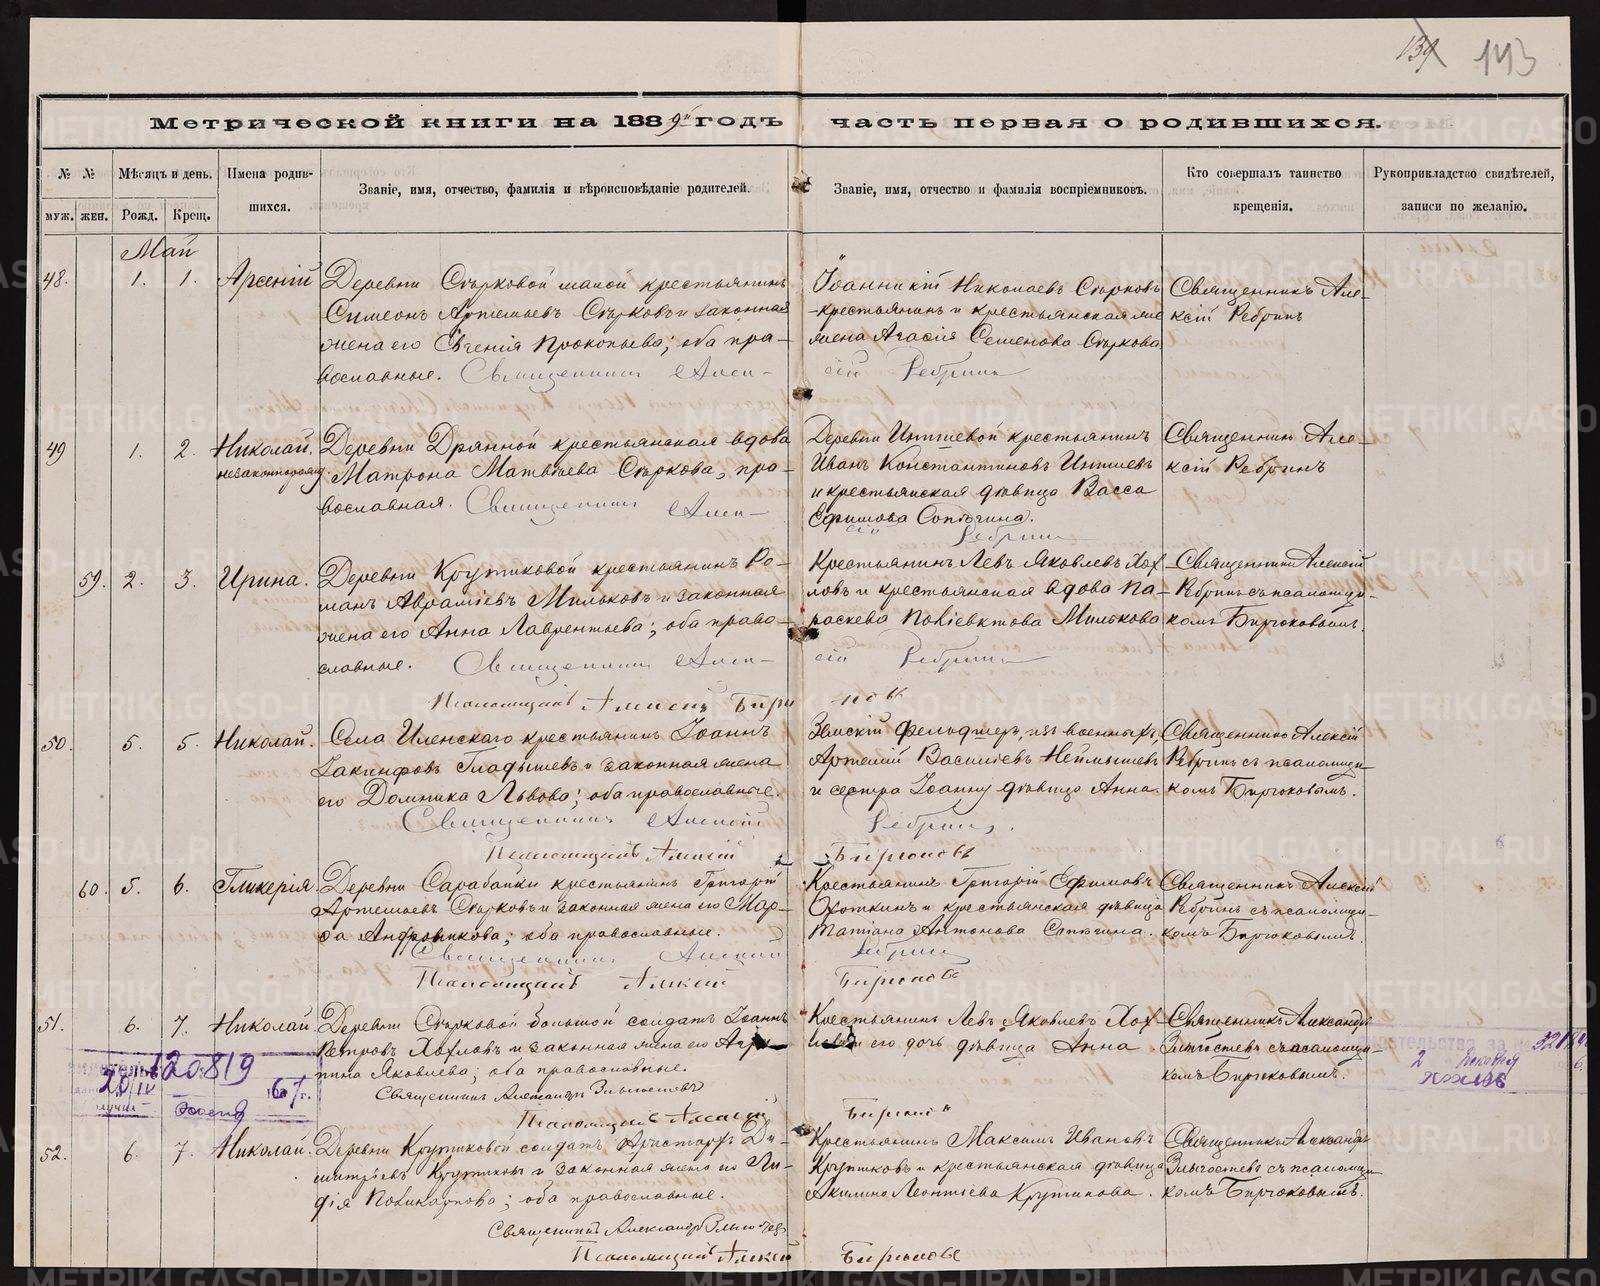 139 143
Метрической книги на 1889й годъ часть первая о родившихся.
№ № Мѣсяцъ и день. Имена родив-
шихся.
Званіе, имя, отчество, фамилія и вѣроисповѣданіе родителей.
Званіе, имя, отчество и фамилія воспріемниковъ.
Кто совершалъ таинство
крещенія.
Рукоприкладство свидѣтелей,
записи по желанію.
муж. жен. Рожд. Крещ.
Май
48. 1. 1. Арсеній
Деревни Сѣрковой малой крестьянинъ
Симеонъ Артемьевъ Сѣрковъ и законная
жена его Евгенія Прокопьева; оба пра-
вославные. Священникъ Алек-
Іоанникій Николаевъ Сѣрковъ
крестьянинъ и крестьянская
жена Агафія Семенова Сѣркова
сій Ребринъ
Священникъ Але-
ксій Ребринъ
49 1. 2. Николай.
незаконнорожд.
Деревни Дрянной крестьянская вдова
Матрона Матвѣева Сѣркова, пра-
вославная. Священникъ Алек-
Деревни Иптшевой крестьянинъ
Иванъ Константиновъ
и крестьянская дѣвица Васса
Ефимова Сопѣгина.
сій Ребринъ
Священникъ Але-
ксій Ребринъ
59. 2. 3. Ирина.
Деревни Крутиковой крестьянинъ Ро-
манъ Авраміевъ Мильковъ и законная
жена его Анна Лаврентьева; оба право-
славные. Священникъ Алек-
Псаломщикъ Алексѣй Бирю
Крестьянинъ Левъ Яковлевъ Хох-
ловъ и крестьянская вдова Па-
раскева Поліевктова Милькова
сій Ребринъ
ковъ
Священникъ Алексій
Ребринъ съ псаломщи-
комъ Бирюковымъ.
50. 5. 5. Николай.
Села Иленскаго крестьянинъ Іоаннъ
Іакинфовъ Гладышевъ и законная жена
его Домника Львова; оба православные.
Священникъ Алексій
Псаломщикъ Алексій
Земскій фельдшеръ, изъ военныхъ,
Артемій Василіевъ Неймышевъ
и сестра Іоанну дѣвица Анна.
Ребринъ.
Бирюковъ
Священникъ Алексій
Ребринъ съ псаломщи-
комъ Бирюковымъ.
60. 5. 6. Гликерія
Деревни Сарабайки крестьянинъ Григорій
Артемьевъ Сѣрковъ и законная жена его Мар-
фа Андроникова; оба православные.
Священникъ Алексій
Псаломщикъ Алексій
Крестьянинъ Григорій Ефимовъ
Охоткинъ и крестьянская дѣвица
Татіана Антонова Сопѣгина.
Ребринъ
Бирюковъ
Священникъ Алексій
Ребринъ съ псаломщи-
комъ Бирюковымъ.
51. 6. 7. Николай
Деревни Сѣрковой большой солдатъ Іоаннъ
Петровъ Хохловъ и законная жена его Агри-
пина Яковлева; оба православные.
Священникъ Александръ Злыгостевъ
Псаломщикъ Алексій
Крестьянинъ Левъ Яковлевъ Хох-
ловъ и его дочь дѣвица Анна
Бирюковъ
Священникъ Александръ
Злыгостевъ съ псаломщи-
комъ Бирюковымъ.
120819
20/IV
52. 6. 7. Николай.
Деревни Крутиковой солдатъ Аристархъ Ди-
митріевъ Крутиковъ и законная жена его Ли-
дія Поликарпова; оба православные.
Священникъ Александръ Злыгостевъ
Псаломщикъ Алексій
Крестьянинъ Максимъ Ивановъ
Крутиковъ и крестьянская дѣвица
Акилина Леонтіева Крутикова.
Бирюковъ
Священникъ Александръ
Злыгостевъ съ псаломщи-
комъ Бирюковымъ.
METRIKI.GASO-URAL.RU